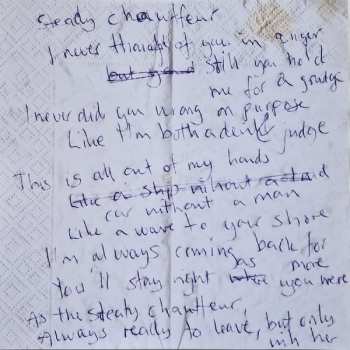 Steady chauffeur
I never thought of you in anger
but good still you hold
me for a grudge
I never did you wrong on purpose
Like I'm both a and judge
This is all out of my hands
Like a ship without a
car without a man
Like a wave to your shore
I'm always coming back for
as more
You'll stay right you were
As the steady chauffeur,
Always ready to leave, but only
with her